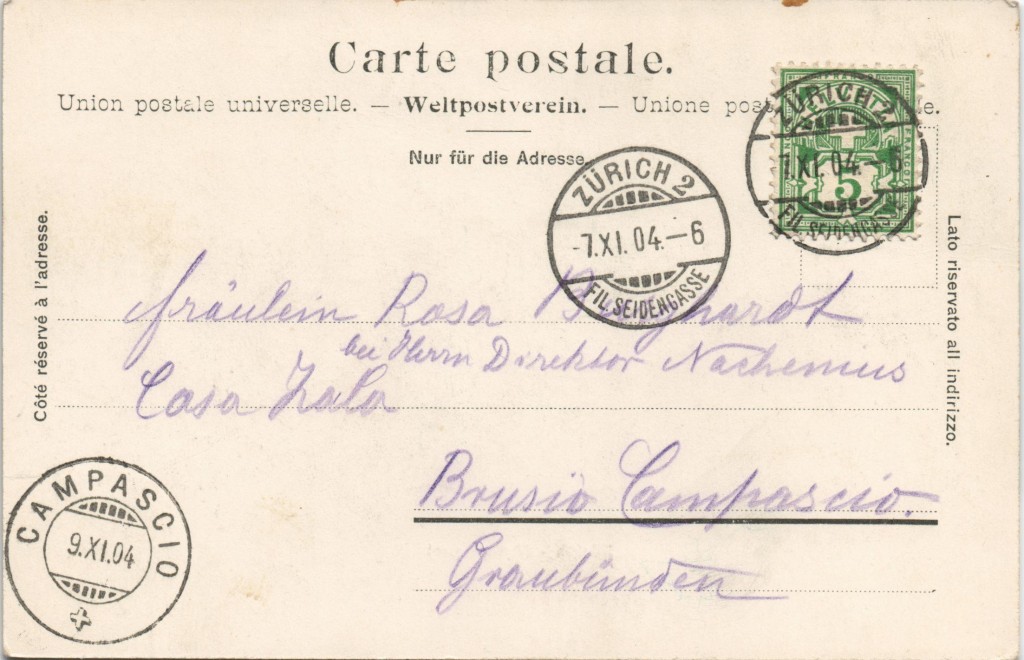 Carte postale.
Union postale universelle. — Weltpostverein. — Unione pos
Nur für die Adresse
ZÜRICH 2
7.XI.04.–6
FIL. SEIDENGASSE
5
ZÜRICH 2
-7.XI.04.–6
FIL. SEIDENGASSE
Côté réservé à l'adresse.
Lato riservato all indirizzo.
Fräulein Rosa
bei Herrn Direktor Nachemius
Casa Zala
Brusio Campascio.
Graubünden
CAMPASCIO
9.XI.04